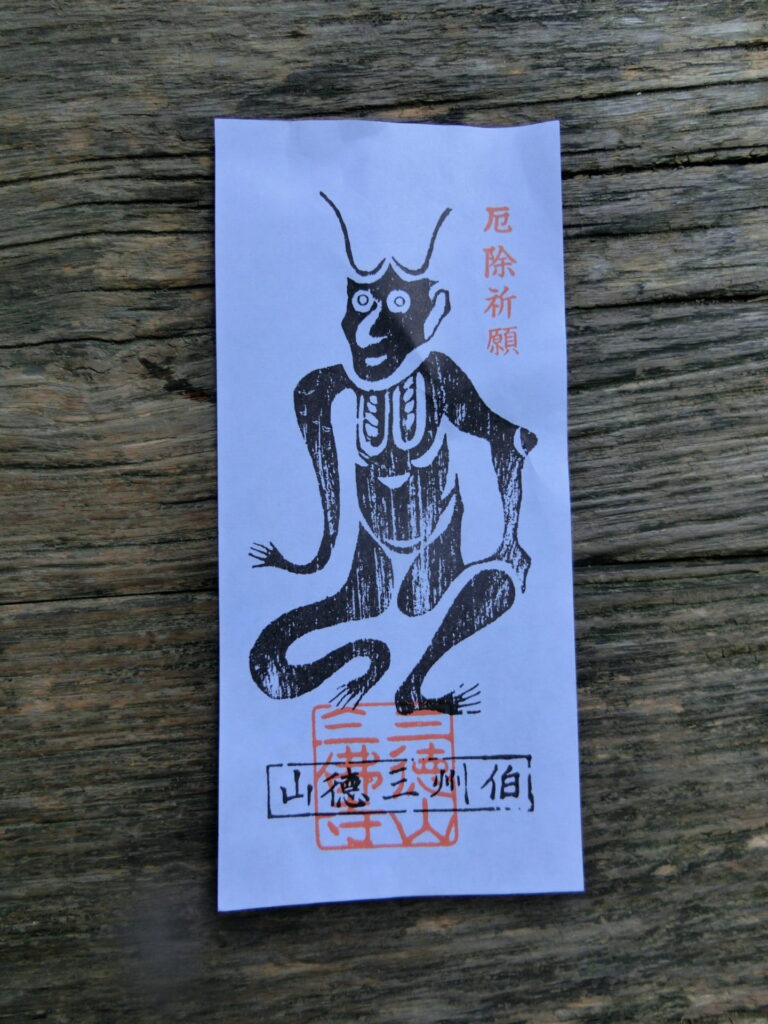 厄除祈願
伯州三徳山
三徳山
三佛寺